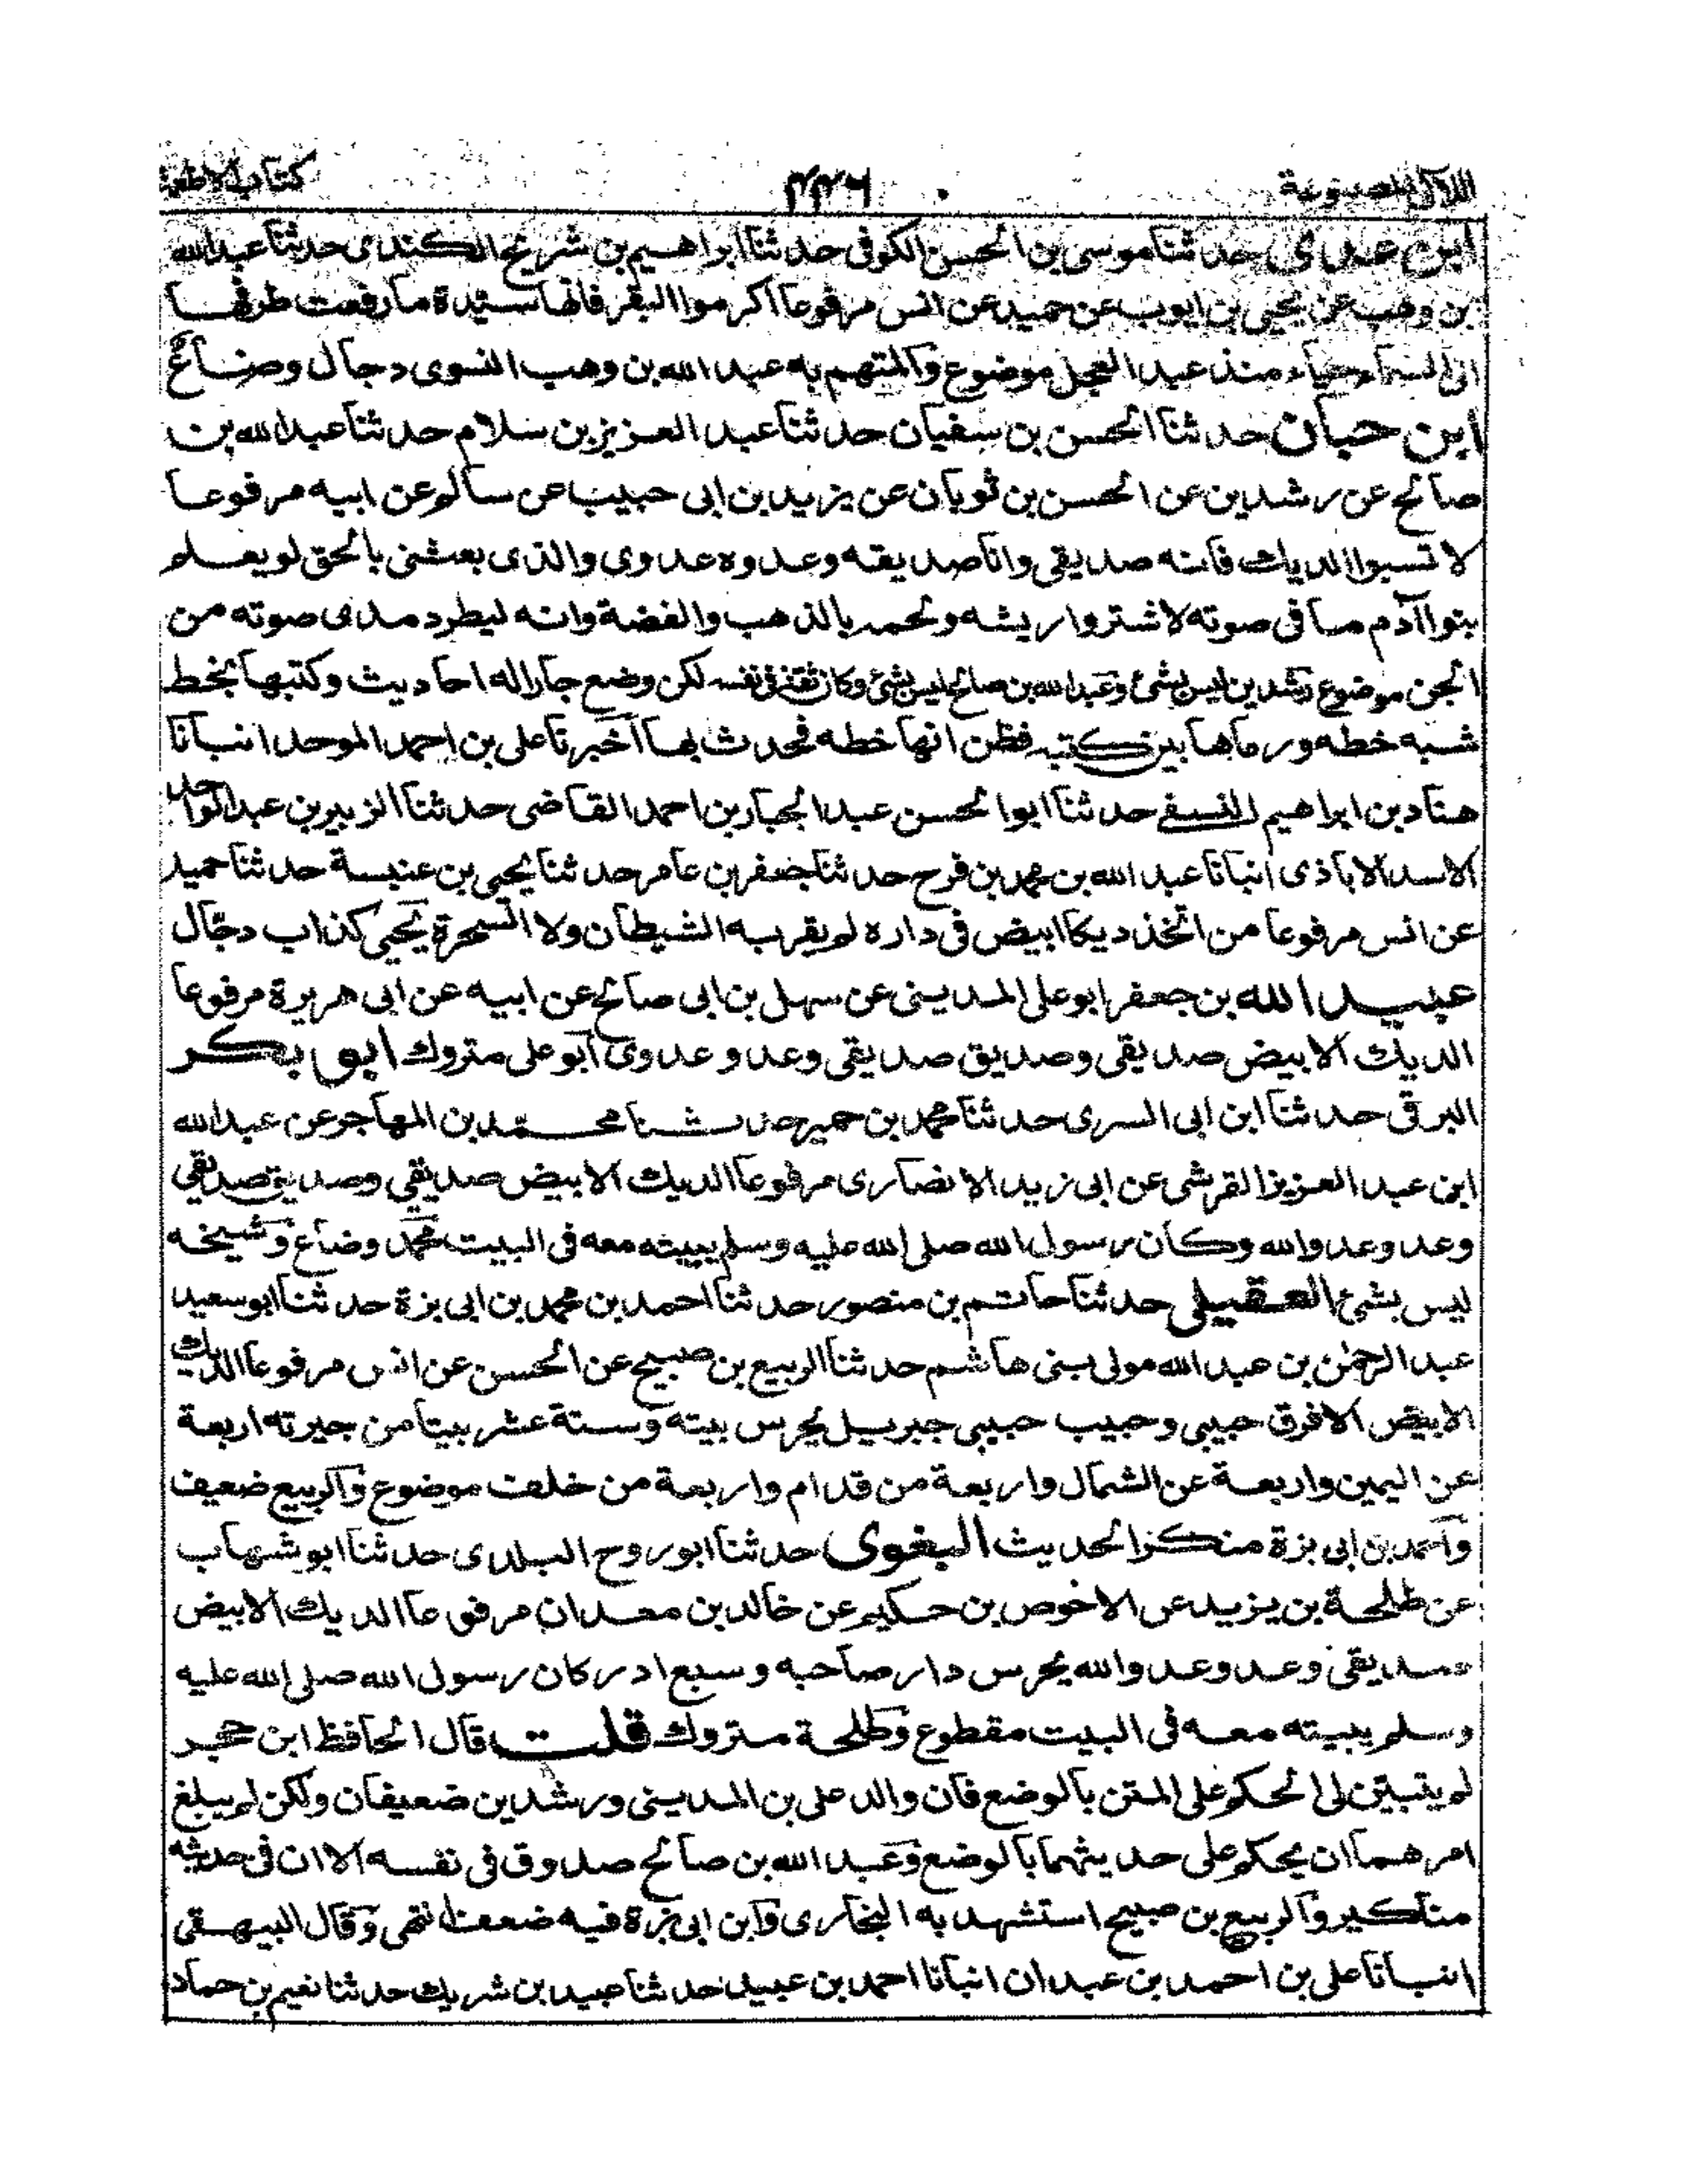 اللآلى المصنوعة ٤٢٦ كتاب الاطعمة
ابن عدى حدثنا موسى بن الحسن الكوفى حدثنا ابراهيم بن شريح الكندى حدثنا عبدالله
بن وهب عن يحيى بن ايوب عن حميد عن انس مرفوعا اكرموا البقر فانها سيدة ما رفعت طرفها
الى السماء حياء منذ عبد العجل موضوع والمتهم به عبد الله بن وهب النسوى دجال وضاع
ابن حبان حدثنا الحسن بن سفيان حدثنا عبد العزيز بن سلام حدثنا عبدالله بن
صالح عن رشدين عن الحسن بن ثوبان عن يزيد بن ابى حبيب عن سالم عن ابيه مرفوعا
لا تسبوا الديك فانه صديقى وانا صديقه وعدوه عدوى والذى بعثنى بالحق لو يعلم
بنوا آدم ما فى صوته لاشتروا ريشه ولحمه بالذهب والفضة وانه ليطرد مدى صوته من
الجن موضوع رشدين ليس بشئ وعبدالله بن صالح ليس بشئ وكان ثقة فى نفسه لكن وضع جار اله احاديث وكتبها بخط
شبه خطه ورماها بين كتبه فظن انها خطه فحدث بها اخبرنا على بن احمد الموحد انبانا
هناد بن ابراهيم النسفى حدثنا ابوا لحسن عبد الجبار بن احمد القاضى حدثنا الزبير بن عبد الواحد
الاسد الاباذى انبانا عبد الله بن محمد بن فرح حدثنا جعفر بن عامر حدثنا يحيى بن عنبسة حدثنا حميد
عن انس مرفوعا من اتخذ ديكا ابيض فى داره لم يقربه الشيطان ولا السحرة يحيى كذاب دجّال
عبيد الله بن جعفر ابو على المدينى عن سهل بن ابى صالح عن ابيه عن ابى هريرة مرفوعا
الديك الابيض صديقى وصديق صديقى وعدو عدوى ابو على متروك ابو بكر
البرقى حدثنا ابن ابى السرى حدثنا محمد بن حمير حدثنا محمّد بن المهاجر عن عبدالله
ابن عبد العزيز القرشى عن ابى زيد الانصارى مرفوعا الديك الابيض صديقي وصديق صديقي
وعدو عدو الله وكان رسول الله صلى الله عليه وسلم يبيته معه فى البيت محمد وضاع وشيخه
ليس بشئ العقيلى حدثنا حاتم بن منصور حدثنا احمد بن محمد بن ابى بزة حدثنا ابو سعيد
عبد الرحمن بن عبد الله مولى بنى هاشم حدثنا الربيع بن صبيح عن الحسن عن انس مرفوعا الديك
الابيض الافرق حبيبى وحبيب حبيبى جبريل يحرس بيته وستة عشر بيتا من جيرته اربعة
عن اليمين واربعة عن الشمال واربعة من قدام واربعة من خلف موضوع والربيع ضعيف
واحمد بن ابى بزة منكر الحديث البغوى حدثنا ابو روح البلدى حدثنا ابو شهاب
عن طلحة بن يزيد عن الاخوص بن حكيم عن خالد بن معدان مرفوعا الديك الابيض
صديقى وعدو عدو الله يحرس دار صاحبه وسبع ادر كان رسول الله صلى الله عليه
وسلم يبيته معه فى البيت مقطوع وطلحة متروك قلت قال الحافظ ابن حجر
لم يتبين لى الحكم على المتن بالوضع فان والد على بن المدينى ورشدين ضعيفان ولكن لم يبلغ
امرهما ان يحكم على حديثهما بالوضع وعبد الله بن صالح صدوق فى نفسه الا ان فى حديثه
مناكير والربيع بن صبيح استشهد به البخارى وابن ابى بزة فيه ضعف انتهى وقال البيهقى
انبانا على بن احمد بن عبدان انبانا احمد بن عبيد حدثنا عبيد بن شريك حدثنا نعيم بن حماد